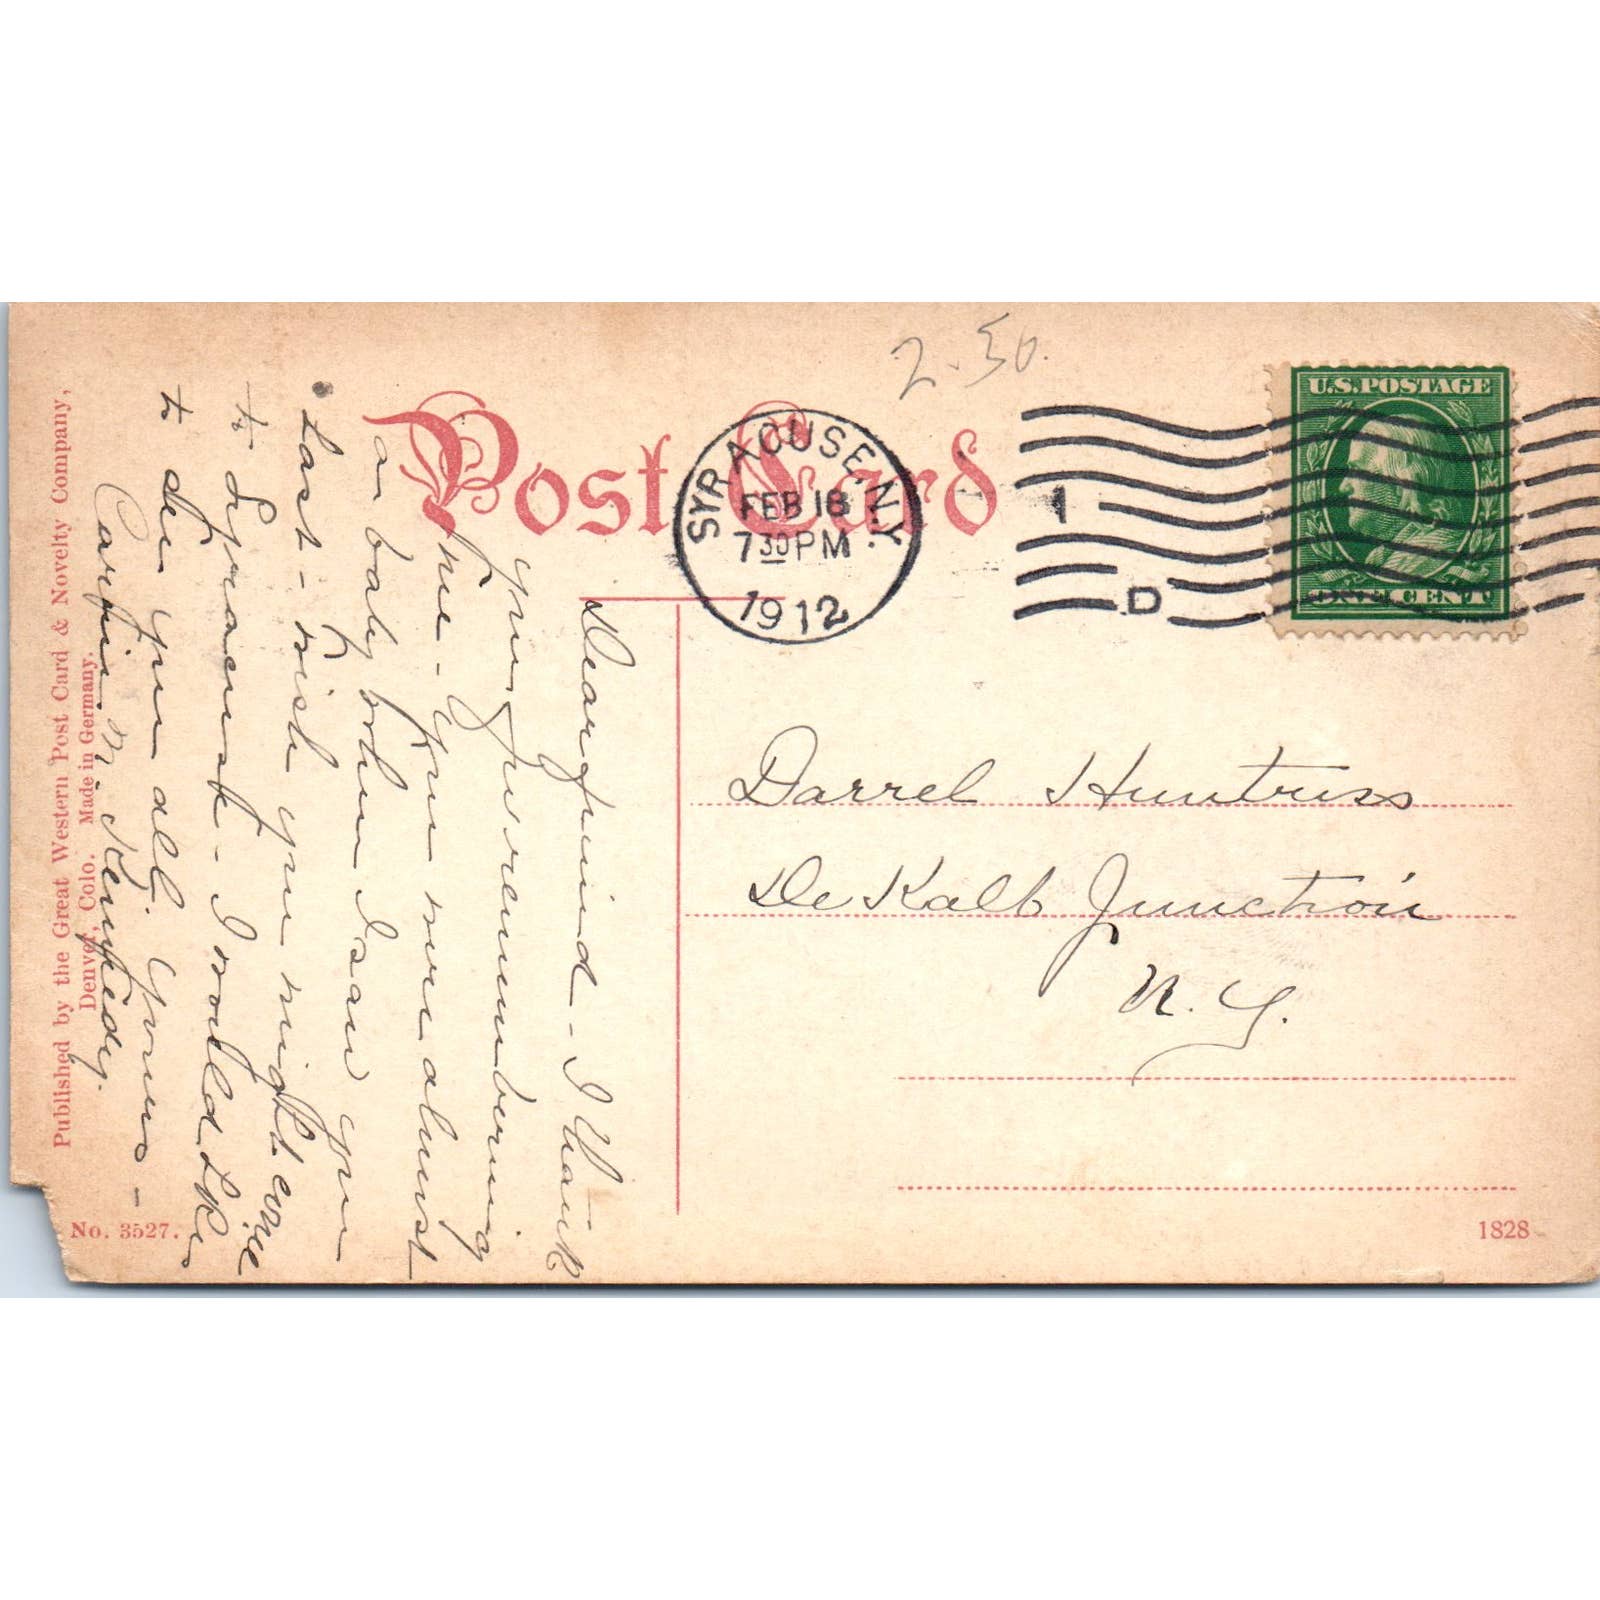 2.50.
Post Card
SYRACUSE, N.Y.
FEB 18
7 30 PM
1912
1
D
U.S. POSTAGE
ONE CENT
Darrel Huntriss
De Kalb Junction
N. Y.
Dear friend - I thank
you for remembering
me - you were almost
a baby when I saw you
last - wish you might come
to Syracuse - I would like
to see you all. Yours -
M. Kennedy.
Published by the Great Western Post Card & Novelty Company,
Denver, Colo. Made in Germany.
No. 3527.
1828